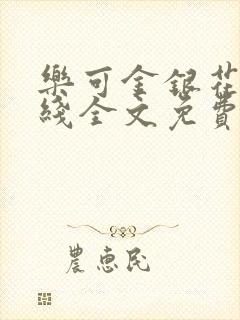 樂可金銀花
綫全文免費
農惠民